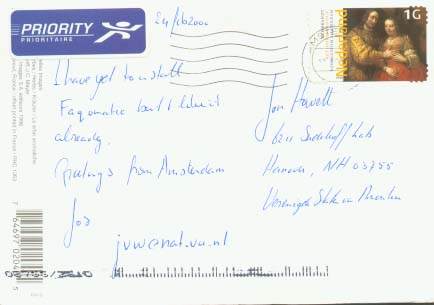 PRIORITY
PRIORITAIRE
24/feb 2000
Nederland
1G
I have yet to install
Faqomatic but I like it
already.
Greetings from Amsterdam
Jos
jvw@nat.vu.nl
Jon Howell
6211 Sudikoff Lab
Hanover, NH 03755
Verenigde Staten van Amerika